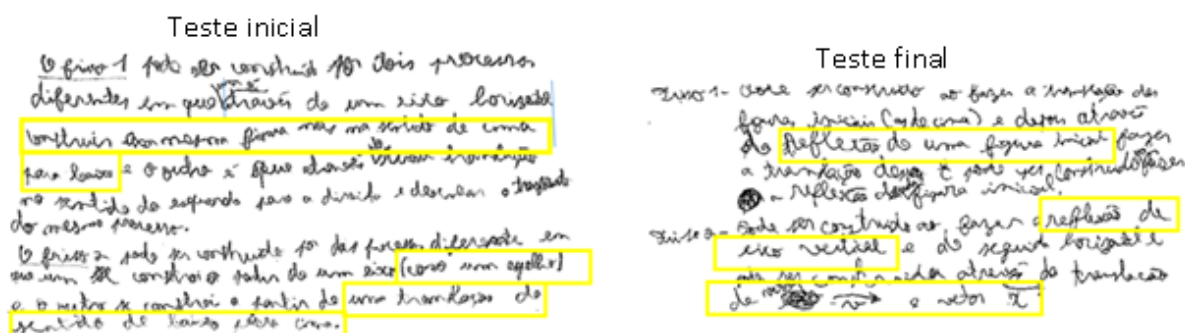 Teste inicial
O friso 1 pode ser construido por dois processos
diferentes em que através de um eixo horizontal
construir a mesma figura mas no sentido de cima
para baixo e o outro é que através translação
no sentido da esquerda para a direita e desenhar o
do mesmo processo.
O friso 2 pode ser construido por dois processos diferente em
que um se constroi o partir de um eixo (como um espelho)
e o outro se constroi a partir de uma translação do
sentido de baixo para cima.
Teste final
Friso 1- pode ser construido ao fazer a translação das
figuras iniciais (as de cima) e depois através
da reflexão de uma figura inicial fazer
a translação E pode ser construido
a reflexão da figura inicial.
Friso 2- Pode ser construido ao fazer a reflexão de
eixo vertical e de seguida horizontal e
através da translação
de e vetor x